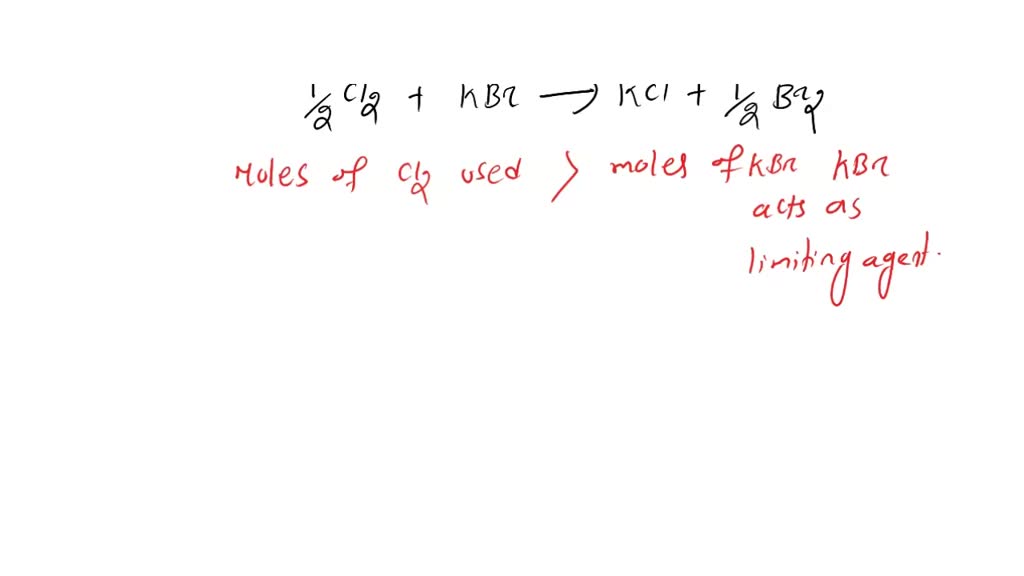 ½ Cl₂ + KBr → KCl + ½ Br₂
Moles of Cl₂ used > moles of KBr KBr
acts as
limiting agent.